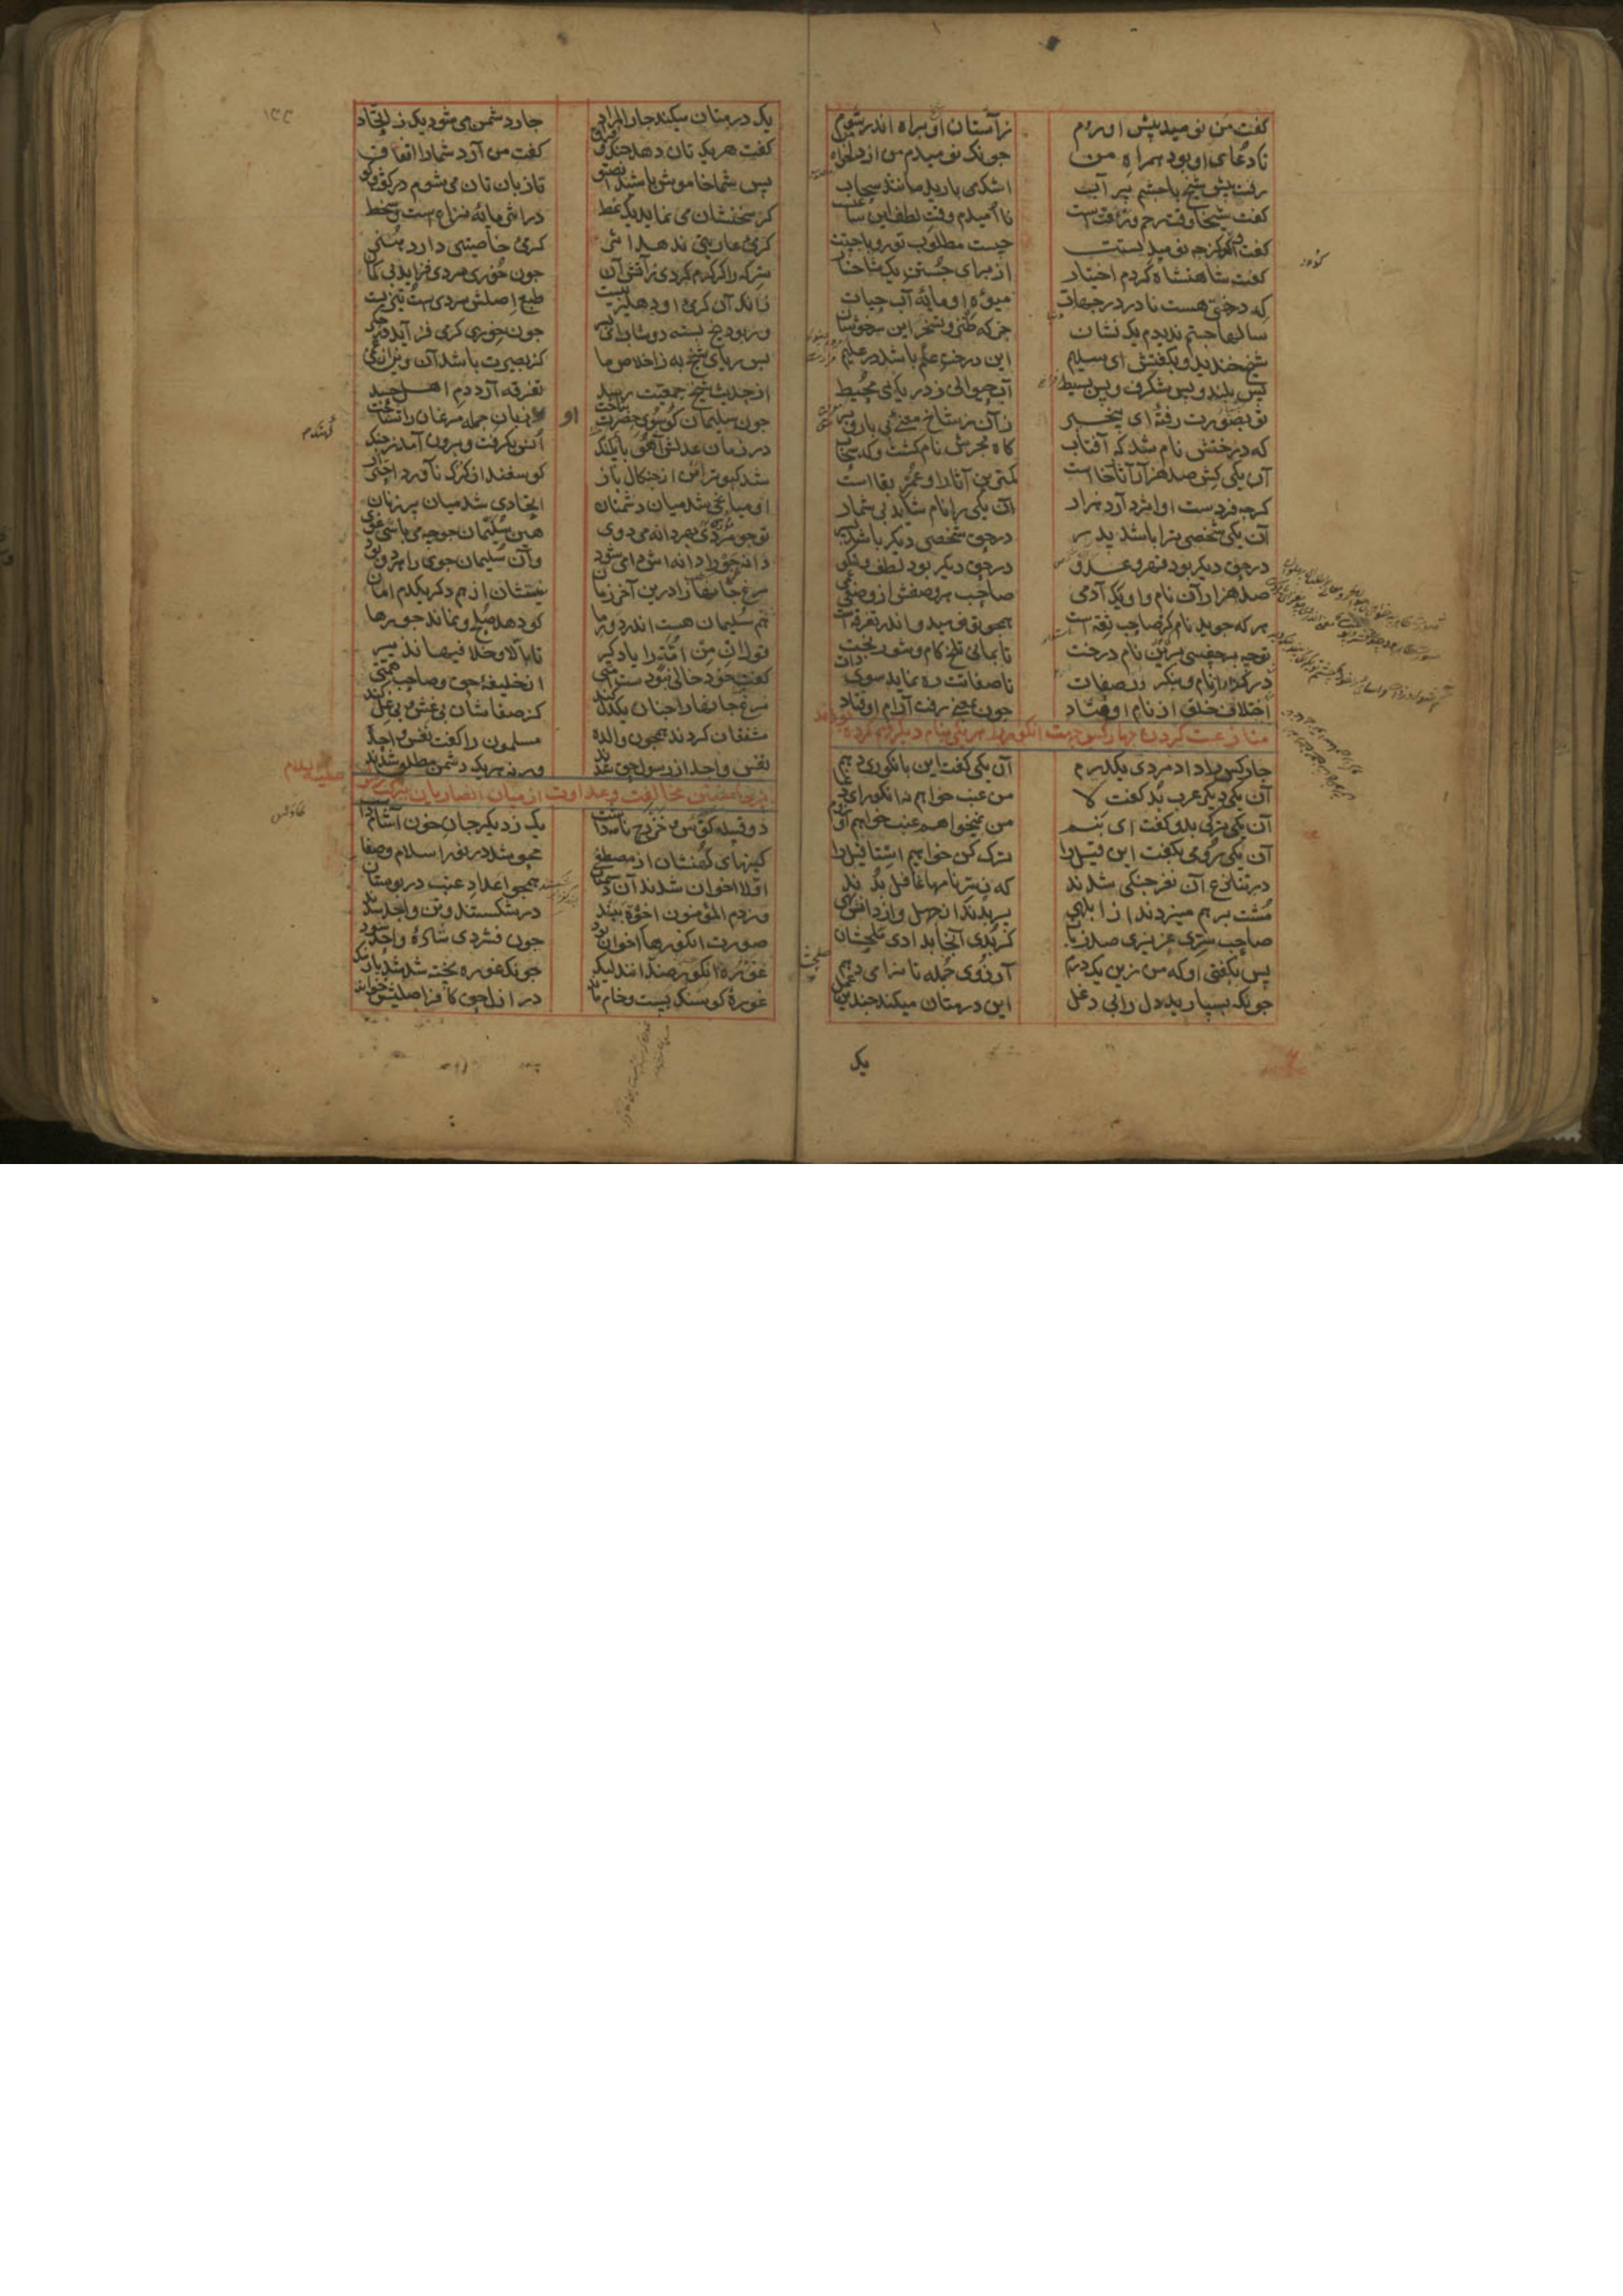 کفت من نومید پیش او روم
زآستان او براه اندر شوم
تا دعای او بود همراه من
چونک نومیدم من از دلخواه من
رفت پیش شیخ با چشم پر آب
اشک می بارید مانند سحاب
کفت شیخا وقت رحم و رأفت است
ناامیدم وقت لطف این ساعت است
کفت واکو کز چه نومیدیستت
چیست مطلوب تو رو با چیستت
کفت شاهنشاه کردم اختیار
از برای جستن یک شاخسار
که درختی هست نادر در جهات
میوهٔ او مایهٔ آب حیات
سالها جستم ندیدم یک نشان
جز که طنز و تسخر این سرخوشان
شیخ خندید و بکفتش ای سلیم
این درخت علم باشد در علیم
بس بلند و بس شکرف و بس بسیط
آب حیوانی ز دریای محیط
تو بصورت رفتهٔ ای بیخبر
زآن ز شاخ معنی بی بار و بر
که درختش نام شد که آفتاب
کاه بحرش نام کشت و که سحاب
آن یکی کش صد هزار آثار خاست
کمترین آثار او عمر بقاست
کرچه فردست او اثر دارد هزار
آن یکی را نام شاید بی شمار
آن یکی شخصی ترا باشد پدر
در حق شخصی دیکر باشد پسر
در حق دیکر بود قهر و عدو
در حق دیکر بود لطف و نکو
صد هزاران نام و او یک آدمی
صاحب هر وصفش از وصفی عمی
هر که جوید نام کر صاحب ثقه است
همچو تو نومید و اندر تفرقه است
تو چه برچفسی برین نام درخت
تا بمانی تلخ کام و شوربخت
در کذر از نام و بنکر در صفات
تا صفاتت ره نماید سوی ذات
اختلاف خلق از نام اوفتاد
چون بمعنی رفت آرام اوفتاد
منازعت کردن چهار کس جهت انکور که هر یکی بنام دیکر فهم کرده بودند
چار کس را داد مردی یک درم
آن یکی کفت این بانکوری دهم
آن یکی دیکر عرب بد کفت لا
من عنب خواهم نه انکور ای دغا
آن یکی ترکی بدو کفت ای بنم
من نمیخواهم عنب خواهم اوزم
آن یکی رومی بکفت این قیل را
ترک کن خواهیم استافیل را
در تنازع آن نفر جنکی شدند
که ز سر نامها غافل بدند
مشت بر هم میزدند از ابلهی
پر بدند از جهل و از دانش تهی
صاحب سری عزیزی صد زبان
کر بدی آنجا بدادی صلحشان
پس بکفتی او که من زین یک درم
آرزوی جمله تانرا می دهم
چونک بسپارید دل را بی دغل
این درمتان میکند چندین عمل
یک
یک درمتان میکند چار المراد
چار دشمن می شود یک ز اتحاد
کفت هر یک تان دهد جنک و فراق
کفت من آرد شما را اتفاق
پس شما خاموش باشید انصتوا
تا زبان تان من شوم در کفت وکو
کر سخنشان می نماید یک نمط
در اثر مایهٔ نزاع است و سخط
کرمی عاریتی ندهد اثر
کرمی خاصیتی دارد هنر
سرکه را کر کرم کردی ز آتش آن
چون خوری سردی فزاید بی کمان
زانک آن کرمی او دهلیزیست
طبع اصلش سردی است و تیزیست
ور بود یخ بسته دوشاب ای پسر
چون خوری کرمی فزاید در جکر
پس ریای شیخ به ز اخلاص ما
کز بصیرت باشد آن وین از عمی
از حدیث شیخ جمعیت رسد
تفرقه آرد دم اهل جسد
چون سلیمان کو سوی حضرت بتاخت
او زبان جمله مرغان را شناخت
در زمان عدلش آهو با پلنک
انس بکرفت و برون آمد ز جنک
شد کبوتر ایمن از چنکال باز
کوسفند از کرک ناورد احتراز
او میانجی شد میان دشمنان
اتحادی شد میان پرزنان
تو چو موری بهر دانه می دوی
هین سلیمان جو چه می باشی غوی
دانه جو را دانه اش دامی شود
وآن سلیمان جوی را هر دو بود
مرغ جانها را درین آخر زمان
نیستشان از هم دکر یکدم امان
هم سلیمان هست اندر دور ما
کو دهد صلح و نماند جور ما
قول ان من امة را یاد کیر
تا به الا و خلا فیها نذیر
کفت خود خالی نبود ست امتی
از خلیفهٔ حق و صاحب همتی
مرغ جانها را چنان یکدل کند
کز صفاشان بی غش و بی غل کند
مشفقان کردند همچون والده
مسلمون را کفت نفس واحده
نفس واحد از رسول حق شدند
ور نه هر یک دشمن مطلق بدند
برخاستن مخالفت و عداوت از میان انصار بابرکت رسول علیه السلام
دو قبیله کاوس و خزرج نام داشت
یک ز دیکر جان خون آشام داشت
کینهای کهنشان از مصطفی
محو شد در نور اسلام و صفا
اولا اخوان شدند آن دشمنان
همچو اعداد عنب در بوستان
وز دم المؤمنون اخوة بپند
در شکستند و تن واحد شدند
صورت انکورها اخوان بود
چون فشردی شیرهٔ واحد شود
غوره و انکور ضدانند لیک
چونک غوره پخته شد شد یار نیک
غورهٔ کو سنک بست و خام ماند
در ازل حق کافر اصلیش خواند